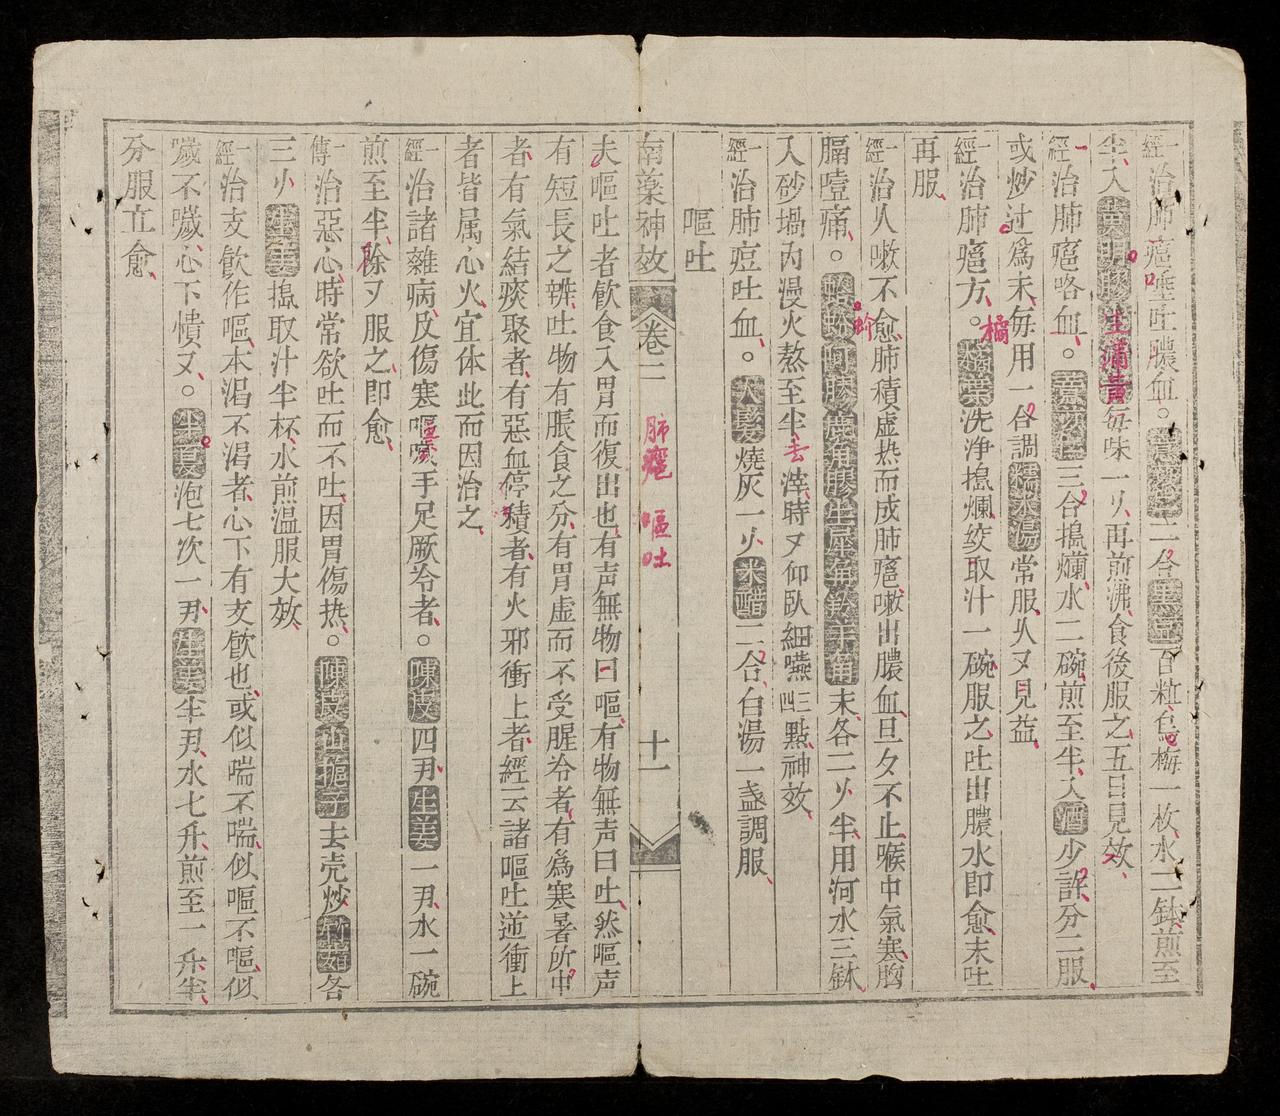 一經治肺癰唾吐膿血。二合黑豆百粒烏梅一枚水二缽煎至
半入黄明膠生蒲黄每味一刄再煎沸食後服之五日見效
一經治肺癰咯血。薏苡仁三合搗爛水二碗煎至半入酒少許分二服
或炒过爲末每用一合調糯米湯常服久又見益
一經治肺癰方。橘葉洗净搗爛絞取汁一碗服之吐出膿水即愈未吐
再服
一經治人嗽不愈肺積虛热而成肺癰嗽出膿血旦夕不止喉中氣塞胸
膈噎痛。蛤蚧阿膠鹿角膠生犀角羚羊角末各二刄半用河水三缽
入砂堝內漫火熬至半去滓時又仰臥細嚥三四點神效
一經治肺痘吐血。人髮燒灰一刄米醋二合白湯一盞調服
嘔吐
南藥神效 卷二 十一
肺癰 嘔吐
夫嘔吐者飲食入胃而復出也有声無物曰嘔有物無声曰吐然嘔声
有短長之辨吐物有脹食之分有胃虛而不受腥冷者有爲寒暑所中
者有氣結痰聚者有惡血停積者有火邪衝上者經云諸嘔吐逆衝上
者皆属心火宜体此而因治之
一經治諸雜病及傷寒嘔噦手足厥冷者。陳皮四刄生姜一刄水一碗
煎至半除又服之即愈
一傳治惡心時常欲吐而不吐因胃傷热。陳皮山梔子去壳炒竹茹各
三刄生姜搗取汁半杯水煎温服大效
一經治支飲作嘔本渴不渴者心下有支飲也或似喘不喘似嘔不嘔似
噦不噦心下憒又。半夏泡七次一刄生姜半刄水七升煎至一升半
分服立愈